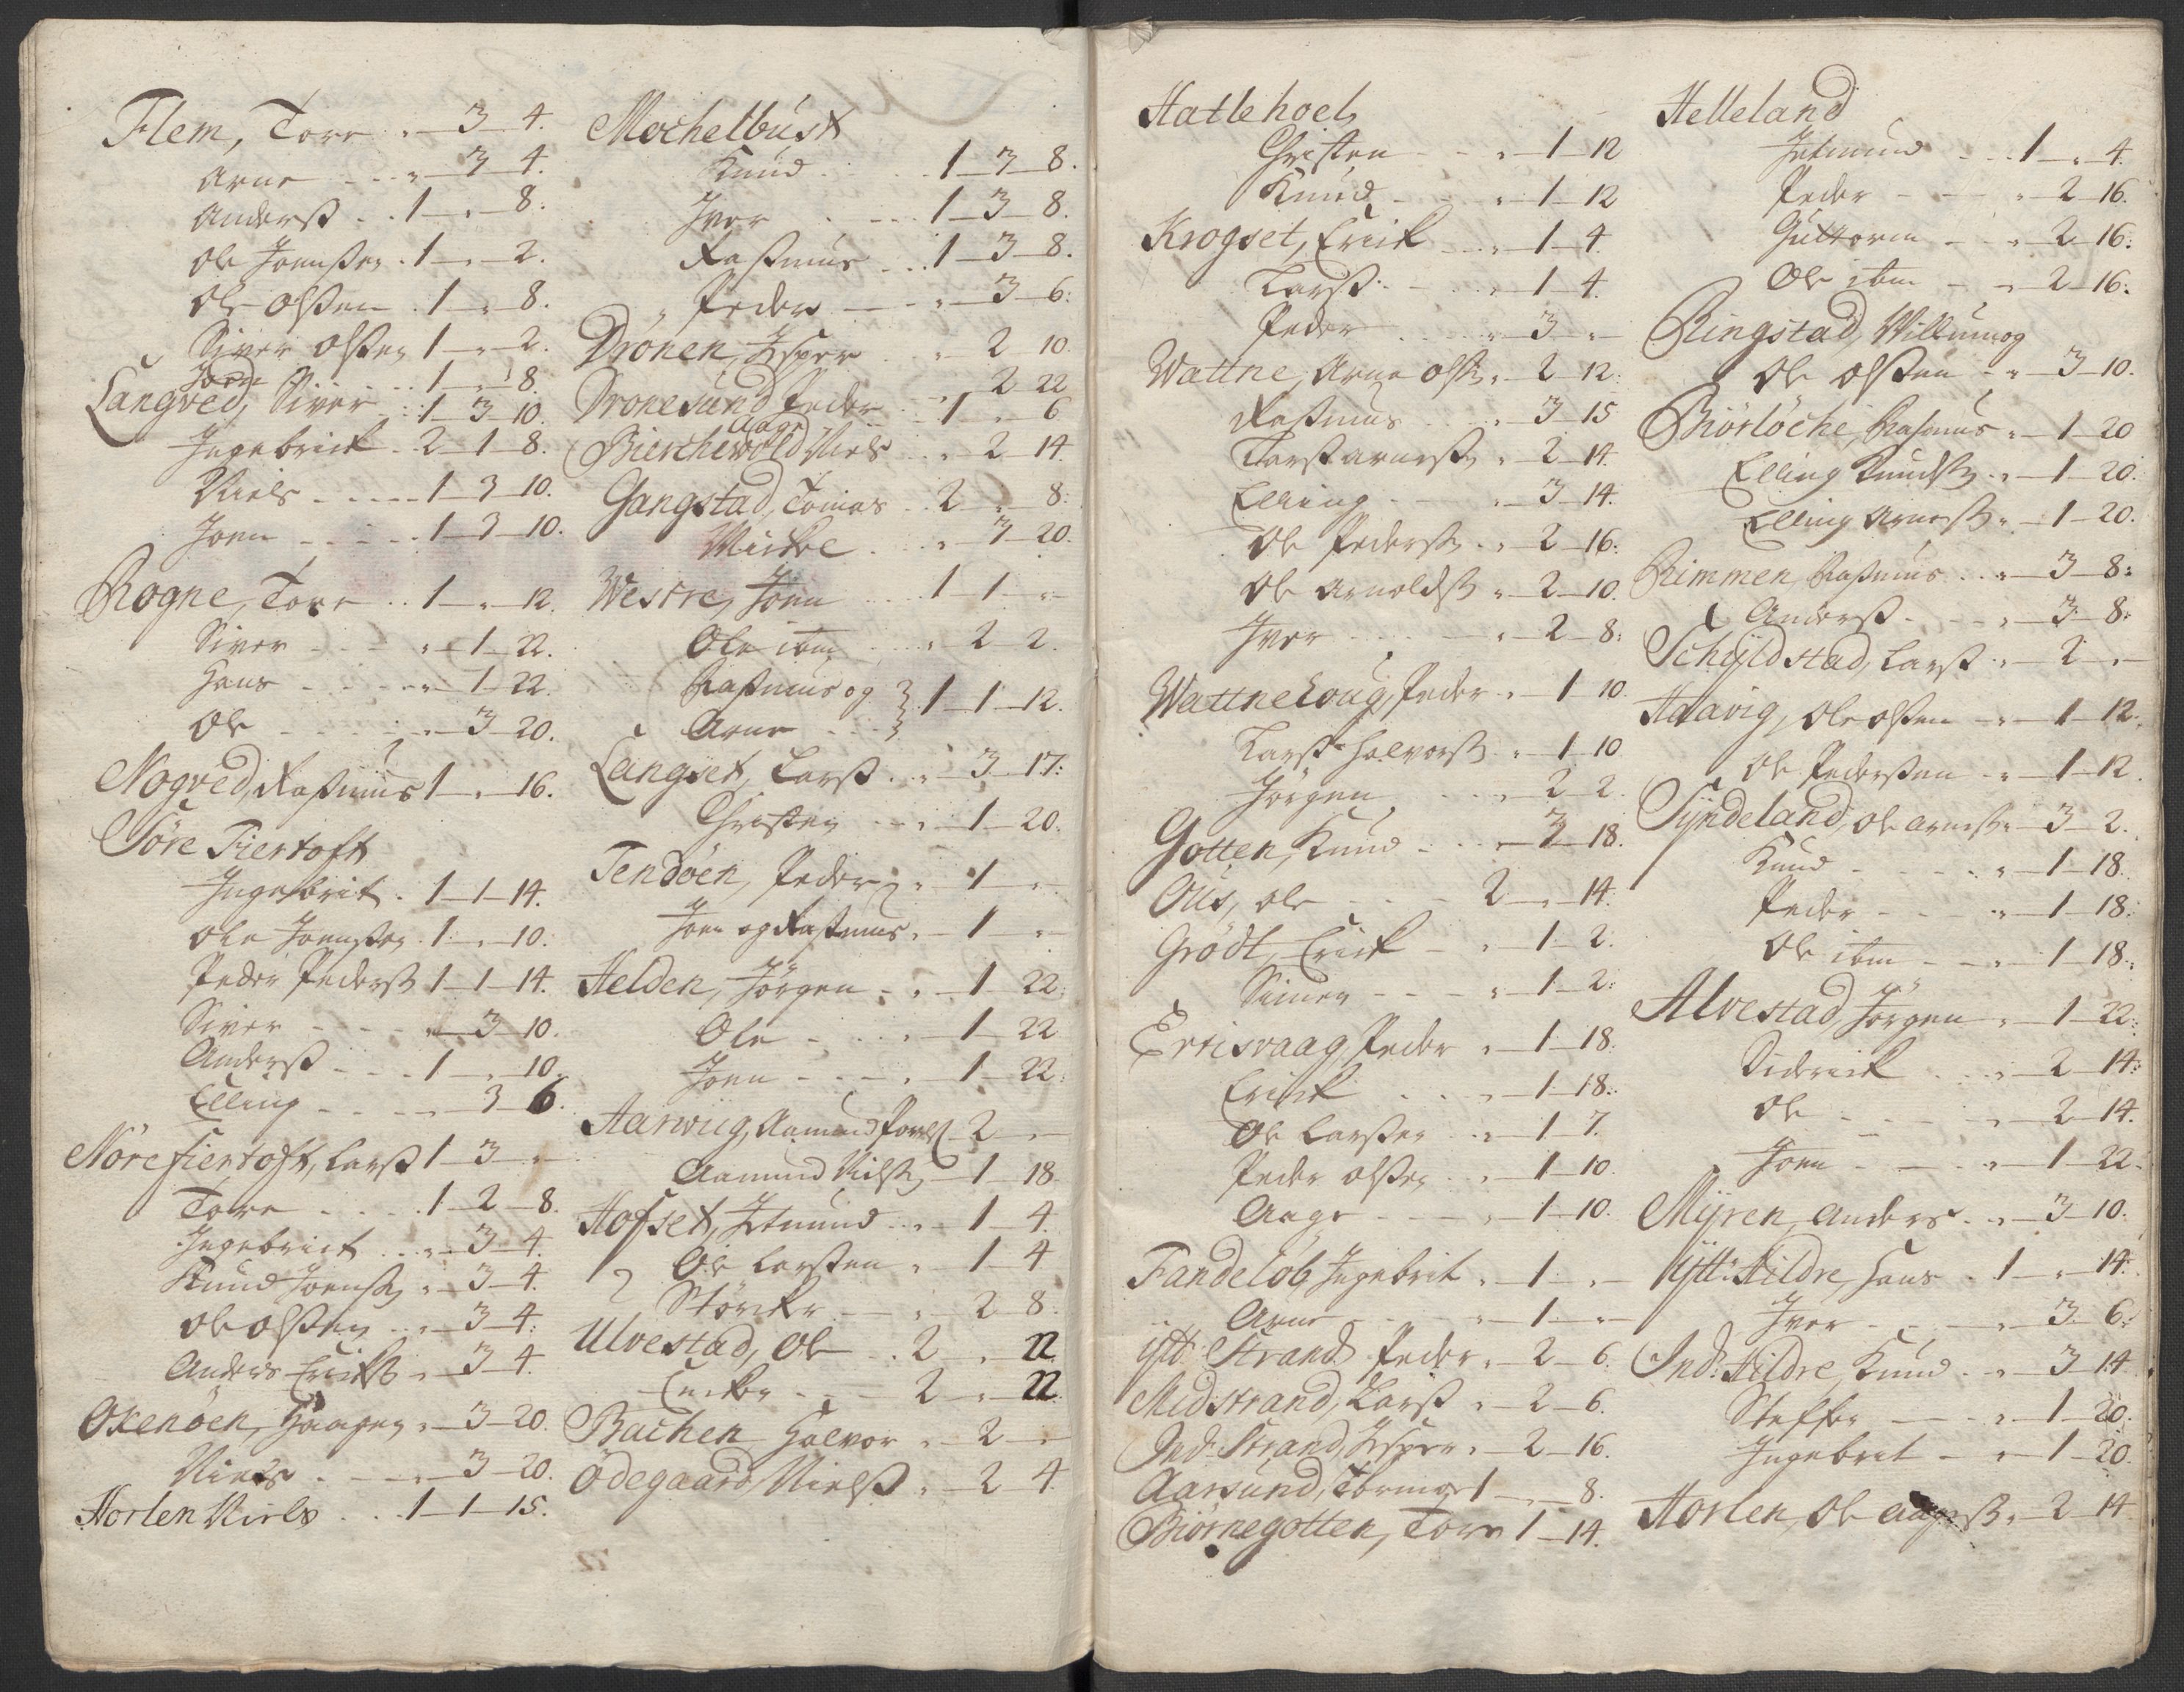 Flem, Tore „ 3 4.
Arne „ 3 4.
Anderß 1 „ 8.
Ole Joenßen 1 „ 2.
Ole Olßen 1 „ 8.
Siver Olßen 1 „ 2.
Joen 1 „ 8.
Langved, Siver 1 3 10.
Ingebrict 2 1 8.
Niels 1 3 10.
Joen 1 3 10.
Rogne, Tore 1 „ 12.
Siver „ 1 22.
Hans „ 1 22.
Ole „ 3 20.
Nogved, Raßmus 1 „ 16.
Söre Fiertoft
Ingebrit 1 1 14.
Ole Joenßen 1 „ 10.
Peder Pederß 1 1 14.
Siver „ 3 10.
Anderß 1 „ 10.
Elling „ 3 6.
Nöre fiertoft, Larß 1 3 „
Tore 1 2 8.
Ingebrict „ 3 4.
Knud Joenß „ 3 4.
Ole Olßen „ 3 4.
Anders Erichß „ 3 4.
Oxenöen, Haagen „ 3 20.
Niels „ 3 20.
Horlen Niels 1 1 15.
Mochelbust
Knud 1 3 8.
Iver 1 3 8.
Raßmus 1 3 8.
Peder „ 3 6.
Drönen, Esper „ 2 10.
„ 2 22
Dronesund Peder 1 „ 6
Aage
Bierchevold Niels „ 2 14.
Gangstad, Tomas 2 „ 8.
Mickel „ 3 20.
Westre, Joen 1 1 „
Ole ibm „ 2 2.
Raßmus og
Arne } 1 1 12.
Langset, Larß „ 3 17.
Christen „ 1 20.
Tendöen, Peder „ 1 „
Joen og Raßmus „ 1 „
Helden, Jörgen „ 1 22.
Ole „ 1 22
Joen „ 1 22.
Harwiig, Aamund Povelß 2 „
Aamund Nielß 1 18
Hofset, Jetmund „ 1 4.
Ole Larßen „ 1 4
Störcker „ 2 8.
Ulvestad, Ole 2 „ 22
2 „ 22.
Bachen Halvor „ 2 „
Ödegaard, Nielß „ 2 4.
Hatlehoel,
Christen „ 1 12
Knud „ 1 12
Krogset, Erick „ 1 4.
Larß „ 1 4.
Peder „ 3 „
Wattne, Arne Olß „ 2 12.
Raßmus „ 3 15
Larß Arneß „ 2 14.
Elling „ 3 14.
Ole Pederß „ 2 16.
Ole Arnoldß „ 2 10.
Iver „ 2 8.
Wattneloug, Peder „ 1 10.
Larß Halvorß „ 1 10
Jörgen „ 2 2.
Gotten, Knud „ 3 18.
Ous, Ole 2 „ 14.
Grödt, Erick „ 1 2.
Simen „ 1 2.
Erisvaag, Peder „ 1 18.
Erick „ 1 18.
Ole Larßen „ 1 7.
Peder Olßen „ 1 10.
Aage „ 1 10.
Fandelöb, Ingebrit „ 1 „
Arne „ 1 „
Ytt: Strand Peder „ 2 6.
Midstrand, Larß „ 2 6.
Ind: Strand, Esper „ 2 16.
Aarsund, 1 „ 8.
Biörnegotten, Tore 1 14.
Helleland
Jetmund 1 „ 4.
Peder „ 2 16.
Guttorm „ 2 16.
Ole ibm „ 2 16.
Ringstad, Villum og
Ole Olßen „ 3 10.
Biörlöche, Rasmus „ 1 20
Elling Knudß „ 1 20.
Elling Arneß „ 1 20.
Rimmen, Raßmus „ 3 8.
Anderß „ 3 8.
Schyldstad, Larß „ 2 „
Haavig, Ole Olßen „ 1 12.
Ole Pederßen „ 1 12.
Syndeland, Ole Arneß „ 3 2.
Knud „ 1 18.
Peder „ 1 18.
Ole ibm „ 1 18.
Alvestad, Jörgen „ 1 22.
Diderick „ 2 14.
Ole „ 2 14.
Joen „ 1 22.
Myren, Anders „ 3 10.
Ytt: Hildre, Hans 1 „ 14.
Iver „ 3 6.
Ind: Hildre, Knud „ 3 14
Steffen „ 1 20.
Ingebret „ 1 20.
Horlen, Ole Aageß „ 2 14.